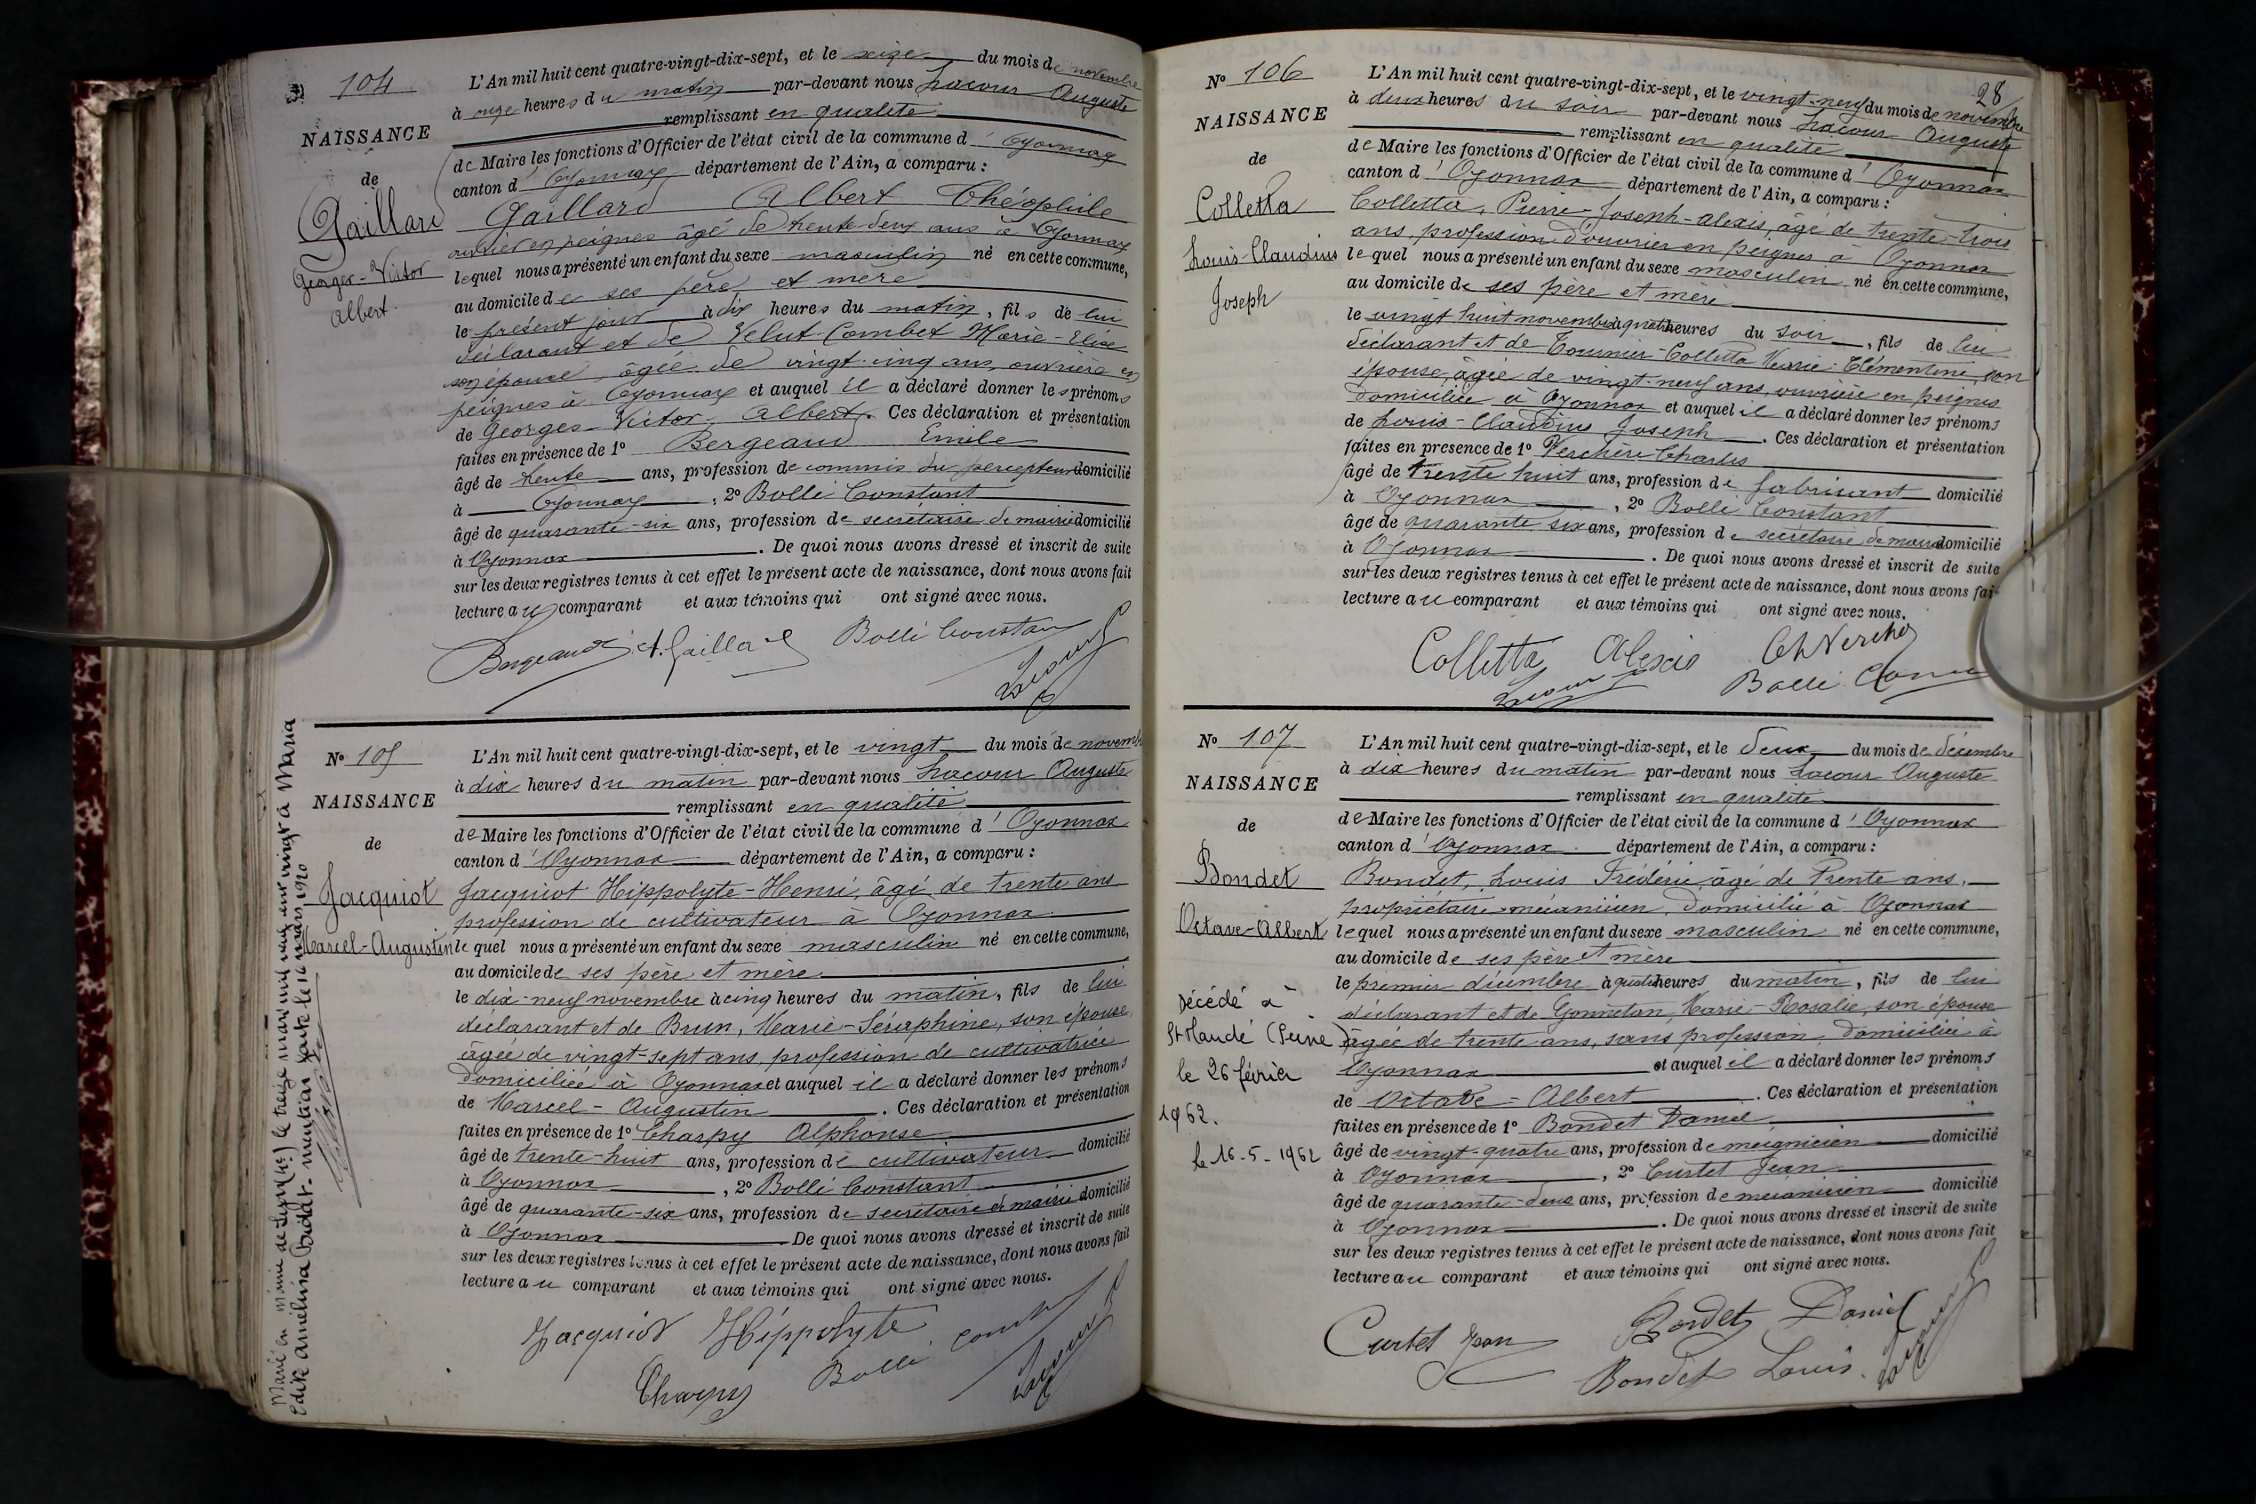 104
NAISSANCE
de
Gaillard
Georges-Victor
Albert
L'An mil huit cent quatre-vingt-dix-sept, et le seize du mois de novembre
à onze heures du matin par-devant nous Lacour Auguste
remplissant en qualité
de Maire les fonctions d'Officier de l'état civil de la commune d'Oyonnax
canton d'Oyonnax département de l'Ain, a comparu :
Gaillard Albert Théophile
ouvrier en peignes âgé de trente-deux ans à Oyonnax
lequel nous a présenté un enfant du sexe masculin né en cette commune,
au domicile de ses père et mère
le présent jour à dix heures du matin, fils de lui
déclarant et de Velut-Combet Marie-Elise
son épouse, âgée de vingt-cinq ans, ouvrière en
peignes à Oyonnax et auquel il a déclaré donner les prénoms
de Georges-Victor Albert. Ces déclaration et présentation
faites en présence de 1° Bergeaud Emile
âgé de trente ans, profession de commis du percepteur domicilié
à Oyonnax, 2° Bolli Constant
âgé de quarante-six ans, profession de secrétaire de mairie domicilié
à Oyonnax. De quoi nous avons dressé et inscrit de suite
sur les deux registres tenus à cet effet le présent acte de naissance, dont nous avons fait
lecture au comparant et aux témoins qui ont signé avec nous.
Bergeaud A. Gaillard Bolli Constant
Lacour
N° 105
NAISSANCE
de
Jacquiot
Marcel-Augustin
Marié en mairie de le treize mars mil neuf cent vingt à Maria
Edith Amélina Badat. mention faite le 14 mars 1920
L'An mil huit cent quatre-vingt-dix-sept, et le vingt du mois de novembre
à dix heures du matin par-devant nous Lacour Auguste
remplissant en qualité
de Maire les fonctions d'Officier de l'état civil de la commune d'Oyonnax
canton d'Oyonnax département de l'Ain, a comparu :
Jacquiot Hippolyte-Henri, âgé de trente ans
profession de cultivateur à Oyonnax
lequel nous a présenté un enfant du sexe masculin né en cette commune,
au domicile de ses père et mère
le dix-neuf novembre à cinq heures du matin, fils de lui
déclarant et de Brun, Marie-Séraphine, son épouse,
âgée de vingt-sept ans, profession de cultivatrice
domiciliée à Oyonnax et auquel il a déclaré donner les prénoms
de Marcel-Augustin. Ces déclaration et présentation
faites en présence de 1° Charpy Alphonse
âgé de trente-huit ans, profession de cultivateur domicilié
à Oyonnax, 2° Bolli Constant
âgé de quarante-six ans, profession de secrétaire de mairie domicilié
à Oyonnax De quoi nous avons dressé et inscrit de suite
sur les deux registres tenus à cet effet le présent acte de naissance, dont nous avons fait
lecture au comparant et aux témoins qui ont signé avec nous.
Jacquiot Hippolyte
Charpy Bolli Constant Lacour
28
N° 106
NAISSANCE
de
Colletta
Louis-Claudius
Joseph
L'An mil huit cent quatre-vingt-dix-sept, et le vingt-neuf du mois de novembre
à deux heures du soir par-devant nous Lacour Auguste
remplissant en qualité
de Maire les fonctions d'Officier de l'état civil de la commune d'Oyonnax
canton d'Oyonnax département de l'Ain, a comparu :
Colletta, Pierre-Joseph-Alexis, âgé de trente-trois
ans, profession d'ouvrier en peignes à Oyonnax
lequel nous a présenté un enfant du sexe masculin né en cette commune,
au domicile de ses père et mère
le vingt huit novembre à quatre heures du soir, fils de lui
déclarant et de Tournier-Colletta Marie-Clémentine, son
épouse, âgée de vingt-neuf ans, ouvrière en peignes
domiciliée à Oyonnax et auquel il a déclaré donner les prénoms
de Louis-Claudius Joseph. Ces déclaration et présentation
faites en présence de 1° Verchère Charles
âgé de trente huit ans, profession de fabricant domicilié
à Oyonnax, 2° Bolli Constant
âgé de quarante six ans, profession de secrétaire de mairie domicilié
à Oyonnax. De quoi nous avons dressé et inscrit de suite
sur les deux registres tenus à cet effet le présent acte de naissance, dont nous avons fait
lecture au comparant et aux témoins qui ont signé avec nous.
Colletta Alexis Ch Verchère
Lacour Bolli
N° 107
NAISSANCE
de
Bondet
Octave-Albert
Décédé à
St Mandé (Seine)
le 26 février
1962.
le 16-5-1962
L'An mil huit cent quatre-vingt-dix-sept, et le deux du mois de décembre
à dix heures du matin par-devant nous Lacour Auguste
remplissant en qualité
de Maire les fonctions d'Officier de l'état civil de la commune d'Oyonnax
canton d'Oyonnax département de l'Ain, a comparu :
Bondet, Louis Frédéric, âgé de trente ans,
propriétaire-mécanicien, domicilié à Oyonnax
lequel nous a présenté un enfant du sexe masculin né en cette commune,
au domicile de ses père et mère
le premier décembre à quatre heures du matin, fils de lui
déclarant et de Gonnetan, Marie-Rosalie, son épouse
âgée de trente ans, sans profession, domiciliée à
Oyonnax et auquel il a déclaré donner les prénoms
de Octave-Albert. Ces déclaration et présentation
faites en présence de 1° Bondet Daniel
âgé de vingt-quatre ans, profession de domicilié
à Oyonnax, 2° Curtet Jean
âgé de quarante-deux ans, profession de mécanicien domicilié
à Oyonnax. De quoi nous avons dressé et inscrit de suite
sur les deux registres tenus à cet effet le présent acte de naissance, dont nous avons fait
lecture au comparant et aux témoins qui ont signé avec nous.
Curtet Jean Bondet Daniel
Bondet Louis. Lacour